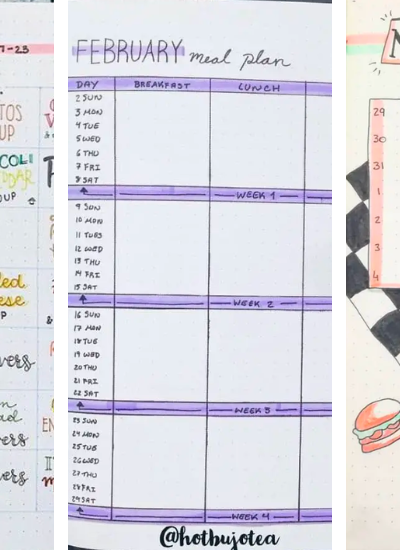 7-23
TOS
UP
COLI
DDAR
OUP
led
ese
P
vers
ad
vers
vers
&
EN
FEBRUARY meal plan
DAY BREAKFAST LUNCH
2 SUN
3 MON
4 TUE
5 WED
6 THU
7 FRI
8 SAT
WEEK 1
9 SUN
10 MON
11 TUES
12 WED
13 THU
14 FRI
15 SAT
WEEK 2
16 SUN
17 MON
18 TUE
19 WED
20 THU
21 FRI
22 SAT
WEEK 3
23 SUN
24 MON
25 TUE
26 WED
27 THU
28 FRI
29 SAT
WEEK 4
@hotbujotea
29
30
31
1
2
3
4